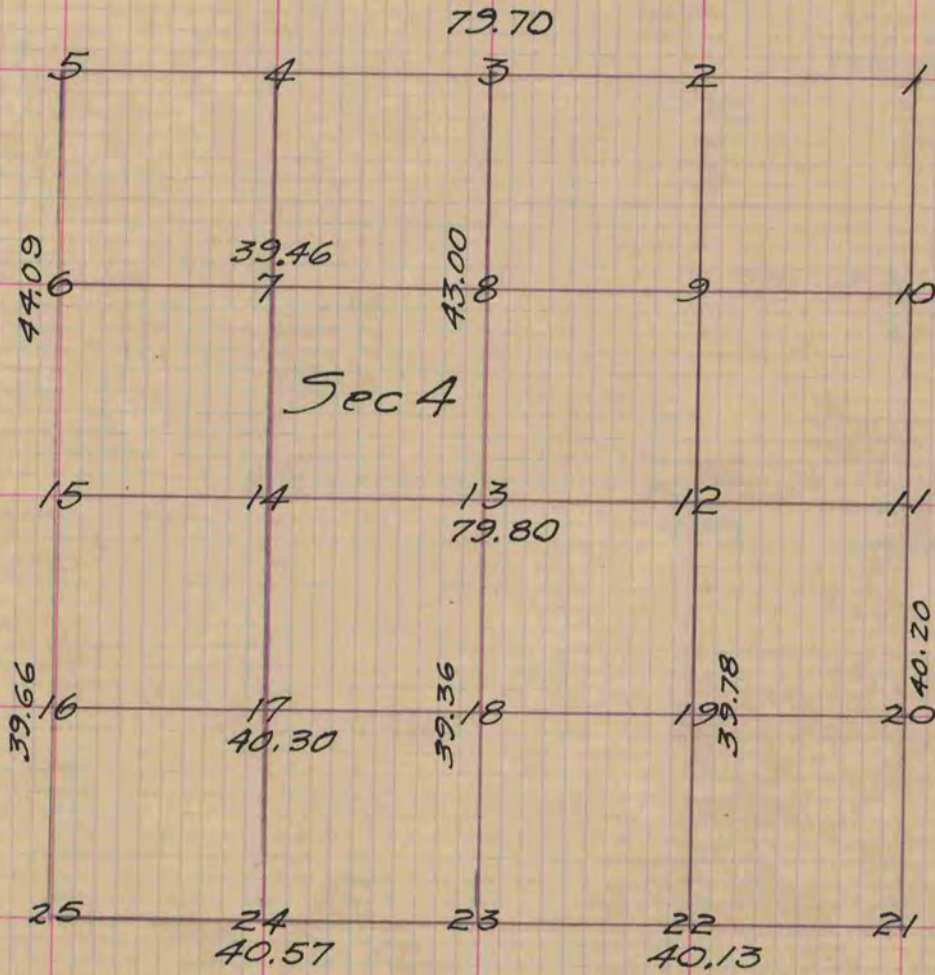 79.70
5 4 3 2 1
44.09
39.46
43.00
6 7 8 9 10
Sec 4
15 14 13 12 11
79.80
39.66
39.36
39.78
40.20
16 17 18 19 20
40.30
25 24 23 22 21
40.57 40.13